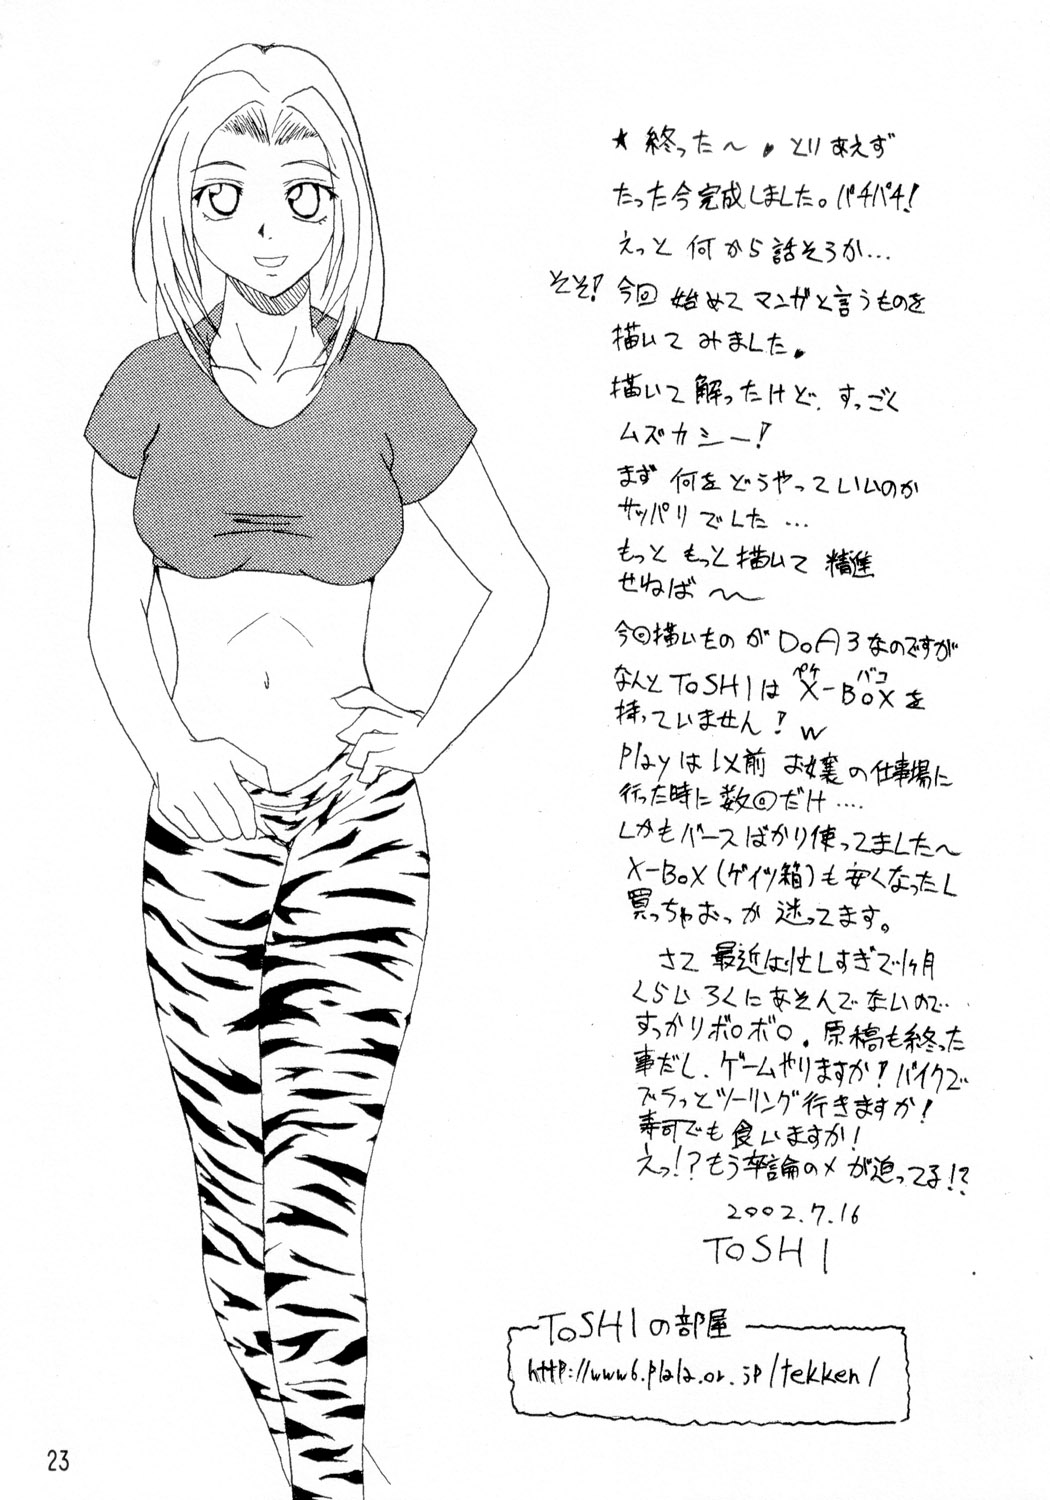 ★終った〜。とりあえず
たった今完成しました。パチパチ!
えっと 何から話そうか…
そそ! 今回 始めて マンガと言うものを
描いて みました。
描いて 解ったけど、すっごく
ムズカシー!
まず 何を どうやって いいのか
サッパリでした…
もっと もっと描いて 精進
せねば〜〜
今回描いたものがDOA3なのですが
なんとTOSHIは X-BOXを
ペケ バコ
持っていません! w
Playは以前 お嬢の仕事場に
行った時に数回だけ‥‥
しかもバースばかり使ってました〜
X-BOX(ゲイツ箱)も安くなったし
買っちゃおっか 迷ってます。
さて 最近は忙しすぎで1ヶ月
くらい ろくにあそんでないので
すっかりボロボロ。原稿も終った
事だし、ゲームやりますか! バイクで
ブラっとツーリング行きますか!
寿司でも食いますか!
えっ!? もう卒論の〆が迫ってる!?
2002.7.16
TOSHI
TOSHIの部屋
http://www6.plala.or.jp/tekken/
23